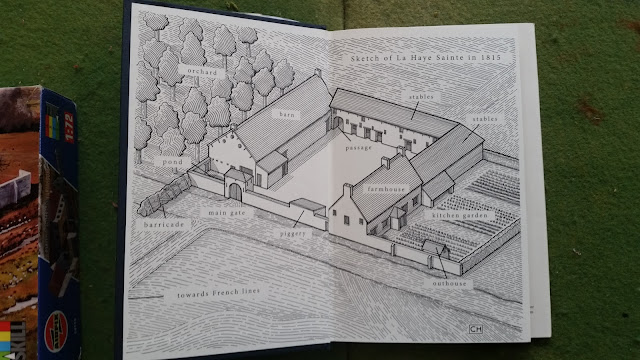 Sketch of La Haye Sainte in 1815
orchard
stables
barn
stables
passage
pond
farmhouse
main gate
kitchen garden
barricade
piggery
outhouse
towards French lines
CH
1:72
AIRFIX